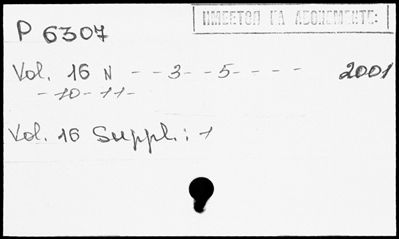 ИМЕЕТСЯ НА АБОНЕМЕНТЕ:
P 6307
Vol. 16 N - - 3 - - 5 - - - - 2001
- 10 - 11 -
Vol. 16 Suppl.: 1